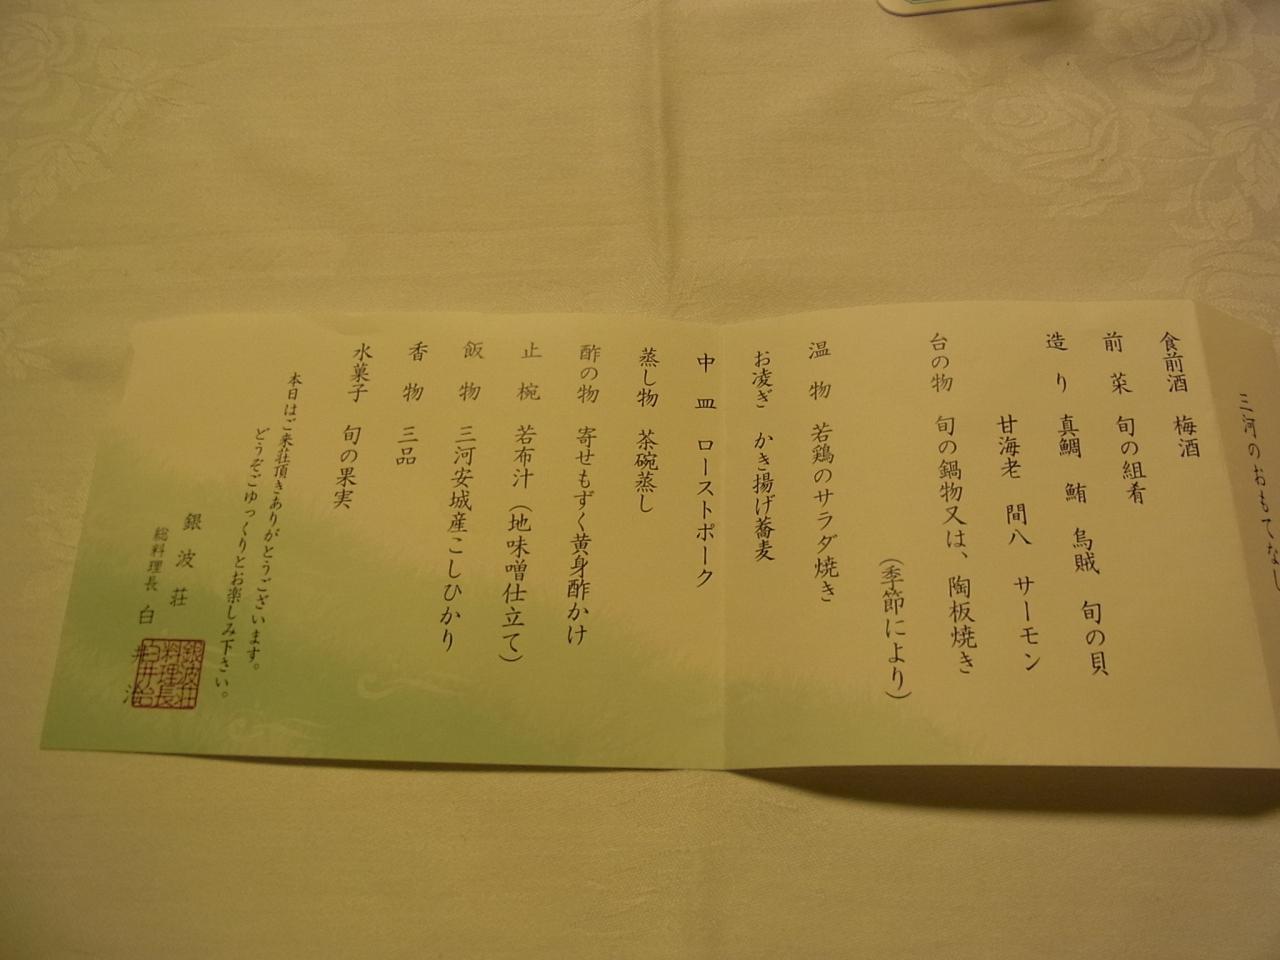 三河のおもてなし
食前酒 梅酒
前菜 旬の組肴
造り 真鯛 鮪 烏賊 旬の貝
甘海老 間八 サーモン
台の物 旬の鍋物又は、陶板焼き
(季節により)
温物 若鶏のサラダ焼き
お凌ぎ かき揚げ蕎麦
中皿 ローストポーク
蒸し物 茶碗蒸し
酢の物 寄せもずく黄身酢かけ
止椀 若布汁(地味噌仕立て)
飯物 三河安城産こしひかり
香物 三品
水菓子 旬の果実
本日はご来荘頂きありがとうございます。
どうぞごゆっくりとお楽しみ下さい。
銀波荘
総料理長 白井治
銀波荘
料理長
白井治